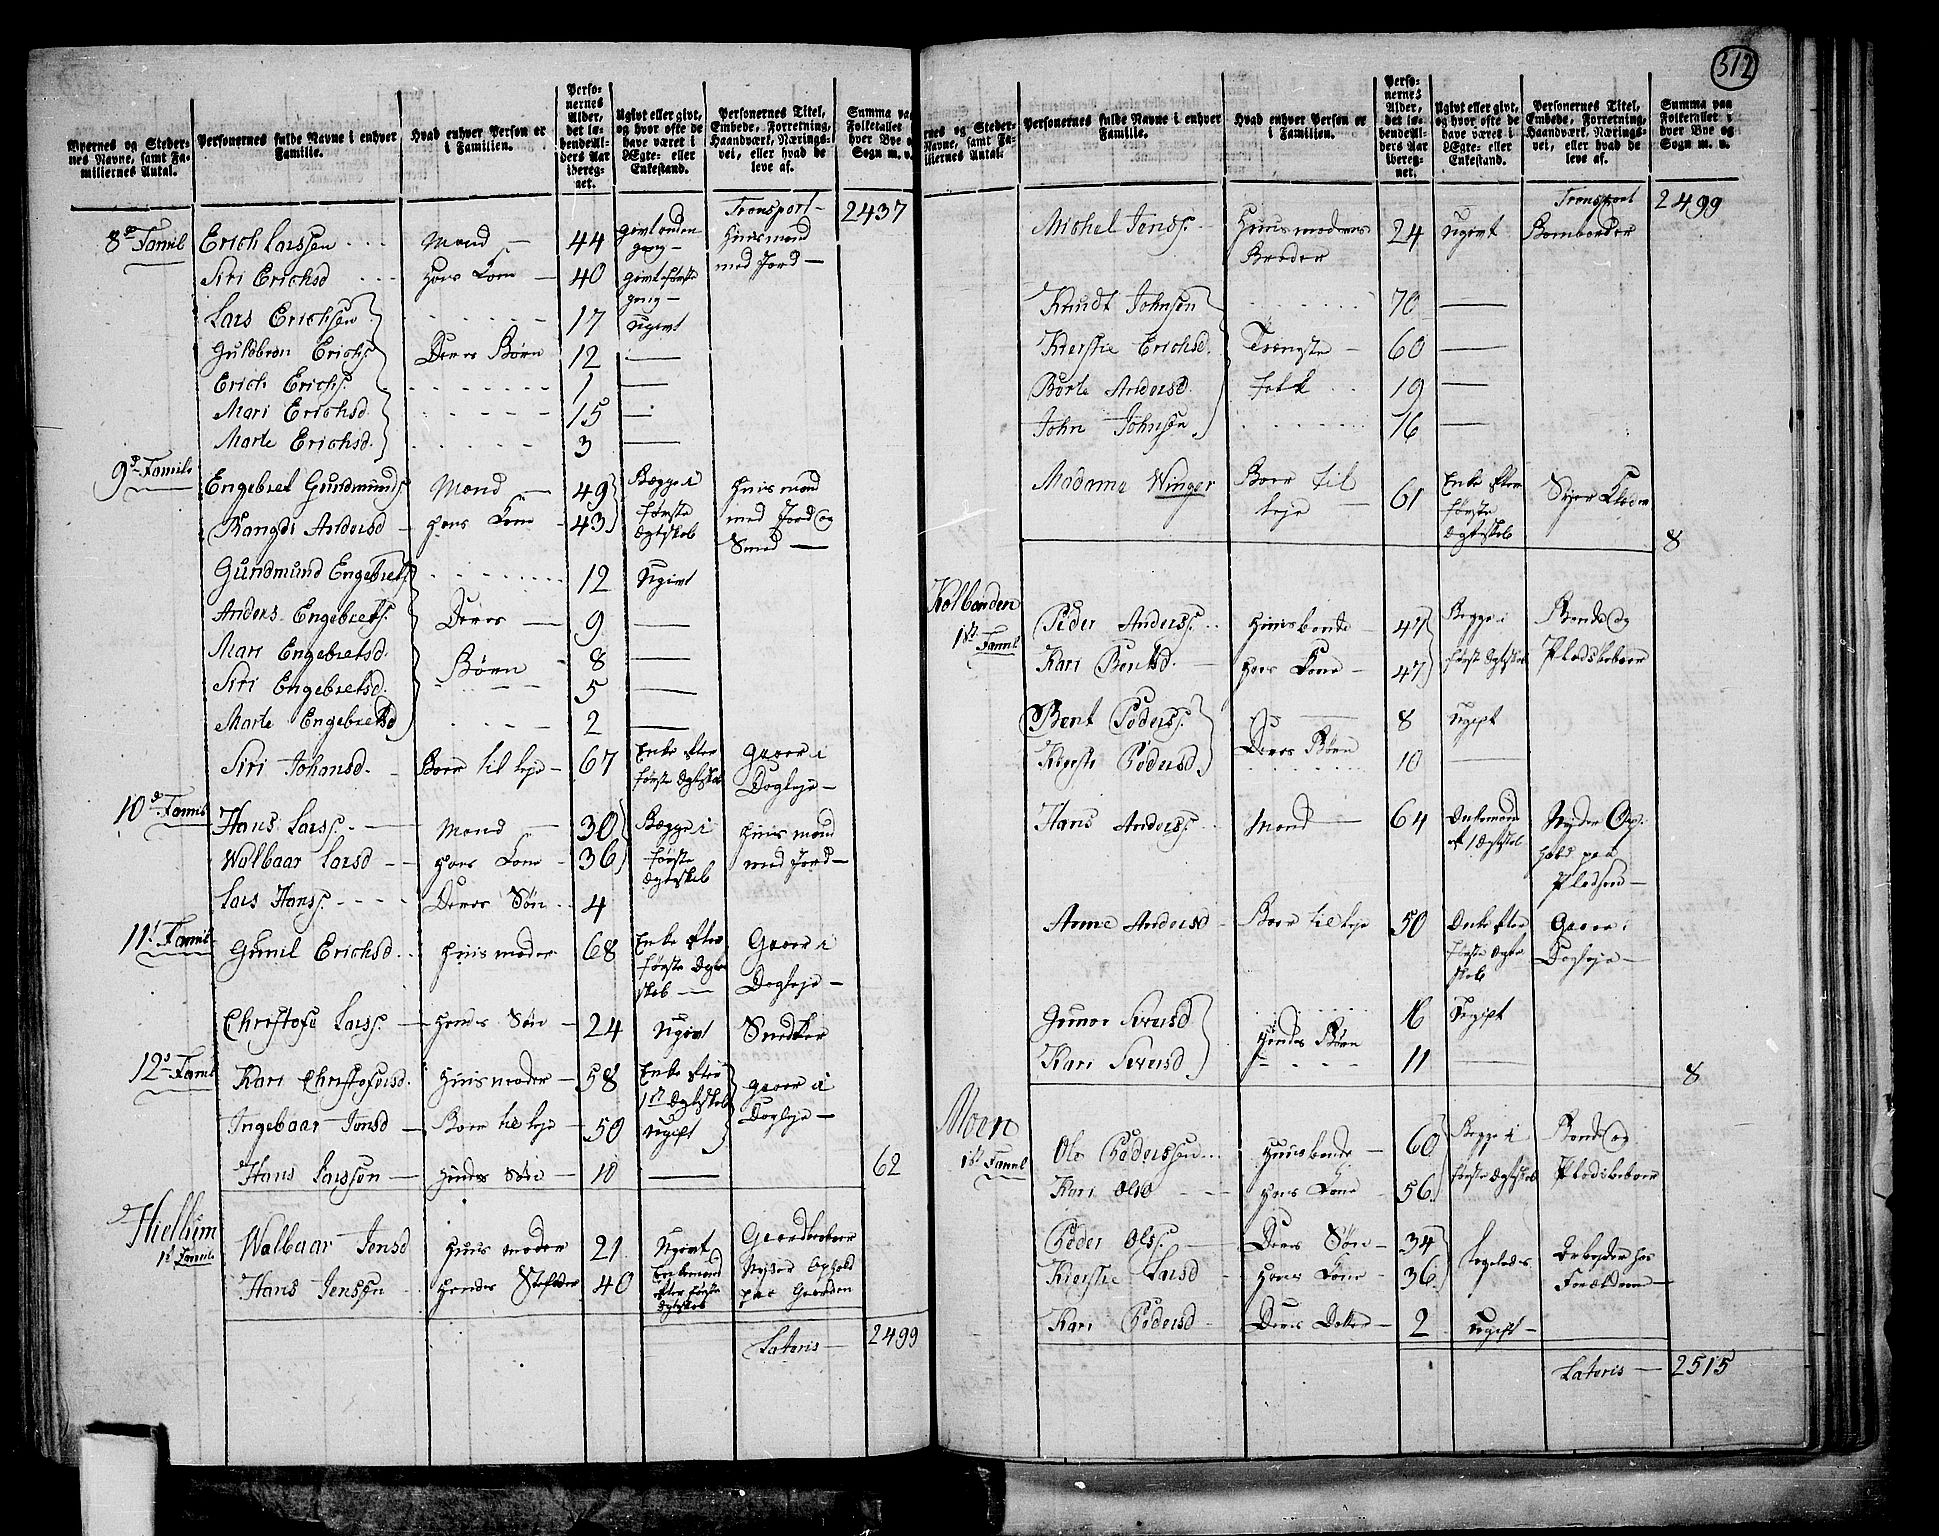 312
Byernes og Stedernes Navne, samt Familiernes Antal.
Personernes fulde Navne i enhver Familie.
Hvad enhver Person er i Familien.
Personernes Alder, det løbende Alders Aar iberegnet.
Ugivt eller givt, og hvor ofte de have været i Ægte- eller Enkestand.
Personernes Titel, Embede, Forretning, Haandværk, Næringsvei, eller hvad de leve af.
Summa paa Folketallet i hver Bye og Sogn m. v.
Transport 2437
8de Famil Erich Larssen Mand 44 givt anden gang Huusmand med Jord
Siri Erichsd Hans Kone 40 givt første gang
Lars Erichsen 17 Ugivt
Guldbran Erichs. Deres Børn 12 —
Erich Erichs. 1 —
Mari Erichsd. 15 —
Marte Erichsd. 3 —
9de Famile Engebret Gundmunds. Mand 49 Begge i Huusmand
Rangdi Andersd Hans Kone 43 første Ægteskab med Jord og Smed
Gundmund Engebrets. 12 Ugivt
Anders Engebrets. Deres 9 —
Mari Engebretsd. Børn 8 —
Siri Engebretsd. 5 —
Marte Engebretsd 2 —
Siri Johansd. Boer til leje 67 Enke efter første Ægteskab Gaaer i Dagleje
10de Famil Hans Larss. Mand 30 Begge i Huusmand
Walbaar Larsd Hans Kone 36 første Ægteskab med Jord
Lars Hans. Deres Søn 4
11te Famil Gunil Erichsd. Huusmoder 68 Enke efter første Ægteskab Gaaer i Dagleje
Christofe Larss. Hendes Søn 24 Ugivt Snedker
12te Famil Kari Christofersd. Huusmoder 58 Enke efter 1ste Ægteskab Gaaer i
Ingebaar Jonsd Boer til leje 50 Ugift Dagleje
Hans Larssen Hendes Søn 10 — 62
Hielbim
1st Famil Walbaar Jensd Huusmoder 21 Ugivt Gaardbeboer
Hans Jenssen Hendes Stiffader 40 Enkemand efter første Ægteskab Nyder Ophold paa Gaarden
Lateris 2499
Byernes og Stedernes Navne, samt Familiernes Antal.
Personernes fulde Navne i enhver Familie.
Hvad enhver Person er i Familien.
Personernes Alder, det løbende Alders Aar iberegnet.
Ugivt eller givt, og hvor ofte de have været i Ægte- eller Enkestand.
Personernes Titel, Embede, Forretning, Haandværk, Næringsvei, eller hvad de leve af.
Summa paa Folketallet i hver Bye og Sogn m. v.
Transport 2499
Michel Jens. Huusmoderens Broder 24 Ugivt
Knudt Johnsen 70 —
Kierstie Erichsd. Tieneste 60 —
Børte Andersd. folk 19 —
John Johnsen 16 —
Madame Winger Boer til leje 61 Enke efter første Ægteskab Syer Klæder
8
Kolbanden
1st Famil Peder Anderss. Huusbonde 47 Begge i Bonde og
Kari Bentsd. Hans Kone 47 første Ægteskab Pladsbeboer
Bent Peders. 8 Ugift
Kierste Pedersd Deres Børn 10 —
Hans Anderss. Mand 64 Enkemand af 1 Ægteskab Nyder Ophold paa Pladsen
Anne Andersd Boer til leje 50 Enke efter første Ægteskab Gaaer i Dagleje
Gunor Iversd 16 Ugift
Kari Iversd Hendes Børn 11 —
8
Moen
1st Famil Ole Pederssen Huusbonde 60 Begge i Bonde og
Kari Olsd Hans Kone 56 første Ægteskab Pladsbeboer
Peder Ols. Deres Søn 34 ligeledes Arbejder hos
Kierstie Larsd Hans Kone 36 Forældrene
Kari Pedersd Deres Datter 2 Ugift
Lateris 2515